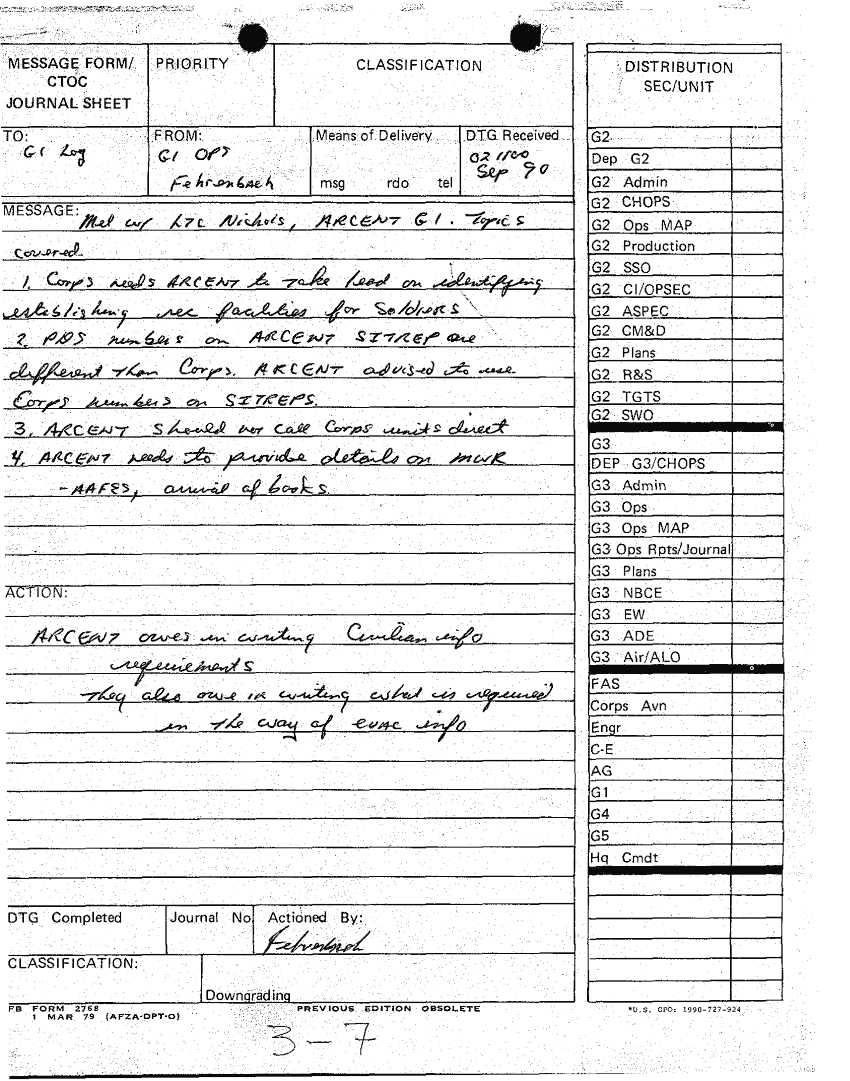 MESSAGE FORM/
CTOC
JOURNAL SHEET
PRIORITY
CLASSIFICATION
TO:
G1 Log
FROM:
G1 OPS
Fehrenbach
Means of Delivery
msg rdo tel
DTG Received
021100
Sep 90
MESSAGE: Met w/ LTC Nichols, ARCENT G1. Topics
covered
1. Corps needs ARCENT to take lead on identifying
establishing rec facilities for Soldiers
2. PDS numbers on ARCENT SITREP are
different than Corps. ARCENT advised to use
Corps numbers on SITREPS.
3. ARCENT should not call Corps units direct
4. ARCENT needs to provide details on MWR
- AAFES, arrival of books.
ACTION:
ARCENT owes in writing Civilian info
requirements
They also owe in writing what is required
in the way of evac info
DTG Completed
Journal No
Actioned By:
Fehrenbach
CLASSIFICATION:
Downgrading
FB FORM 2768
1 MAR 79 (AFZA-DPT-O)
PREVIOUS EDITION OBSOLETE
3-7
DISTRIBUTION
SEC/UNIT
G2
Dep G2
G2 Admin
G2 CHOPS
G2 Ops MAP
G2 Production
G2 SSO
G2 CI/OPSEC
G2 ASPEC
G2 CM&D
G2 Plans
G2 R&S
G2 TGTS
G2 SWO
G3
DEP G3/CHOPS
G3 Admin
G3 Ops
G3 Ops MAP
G3 Ops Rpts/Journal
G3 Plans
G3 NBCE
G3 EW
G3 ADE
G3 Air/ALO
FAS
Corps Avn
Engr
C-E
AG
G1
G4
G5
Hq Cmdt
*U.S. GPO: 1990-727-924